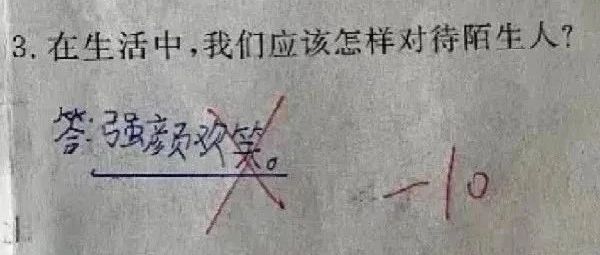 3. 在生活中,我们应该怎样对待陌生人?
答:强颜欢笑。
-10